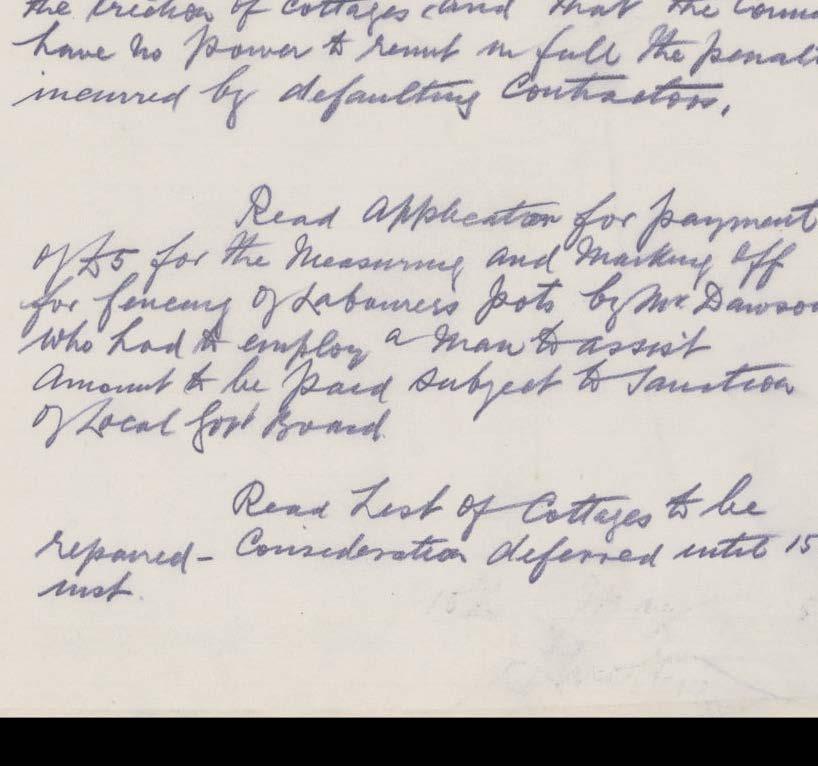 the erection of Cottages and that the Counc
have no power to remit in full the penalt
incurred by defaulting Contractors.
Read Application for payment
of £5 for the Measuring and Marking Off
for fencing of Labourers plots by Mr. Dawson
Who had to employ a Man to assist
Amount to be paid subject to Sanction
of Local Govt Board
Read List of Cottages to be
repaired - Consideration deferred until 15
inst.